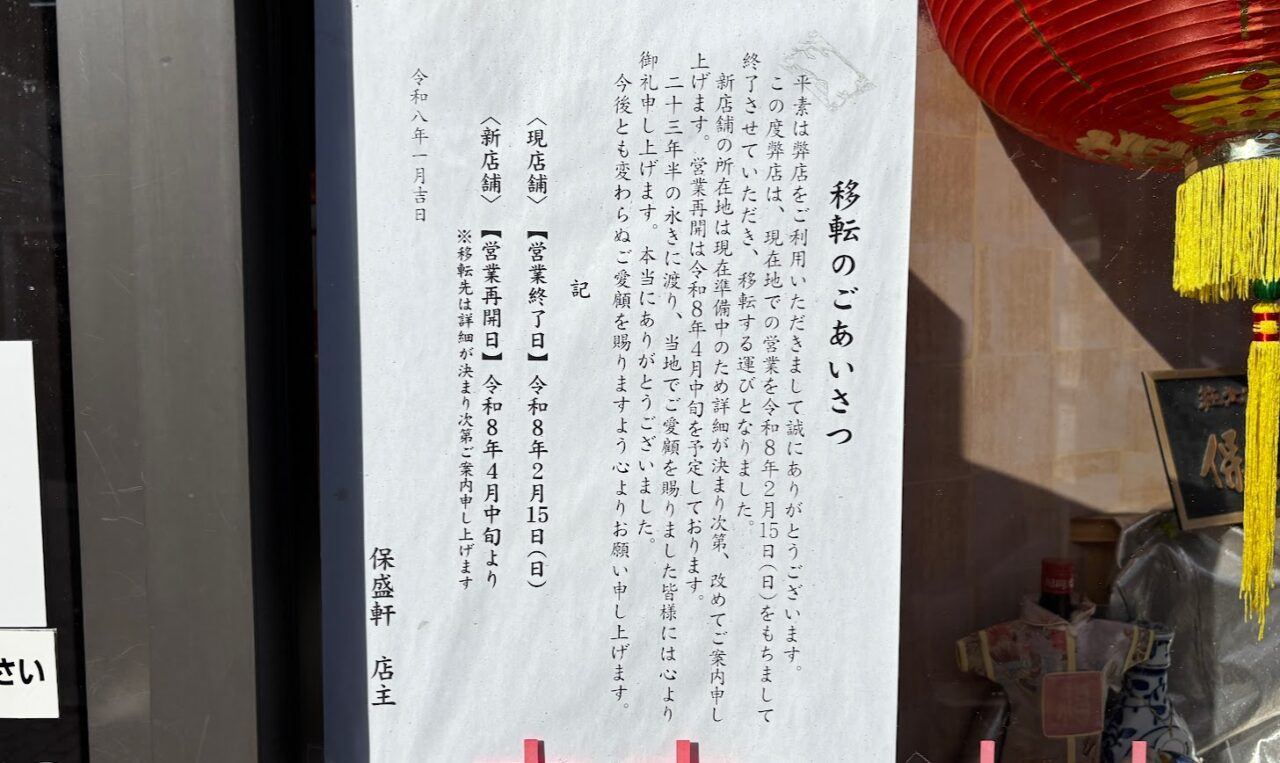 移転のごあいさつ
平素は弊店をご利用いただきまして誠にありがとうございます。
この度弊店は、現在地での営業を令和8年2月15日(日)をもちまして
終了させていただき、移転する運びとなりました。
新店舗の所在地は現在準備中のため詳細が決まり次第、改めてご案内申し
上げます。営業再開は令和8年4月中旬を予定しております。
二十三年半の永きに渡り、当地でご愛顧を賜りました皆様には心より
御礼申し上げます。本当にありがとうございました。
今後とも変わらぬご愛顧を賜りますよう心よりお願い申し上げます。
記
〈現店舗〉【営業終了日】令和8年2月15日(日)
〈新店舗〉【営業再開日】令和8年4月中旬より
※移転先は詳細が決まり次第ご案内申し上げます
令和八年一月吉日
保盛軒 店主
さい
保